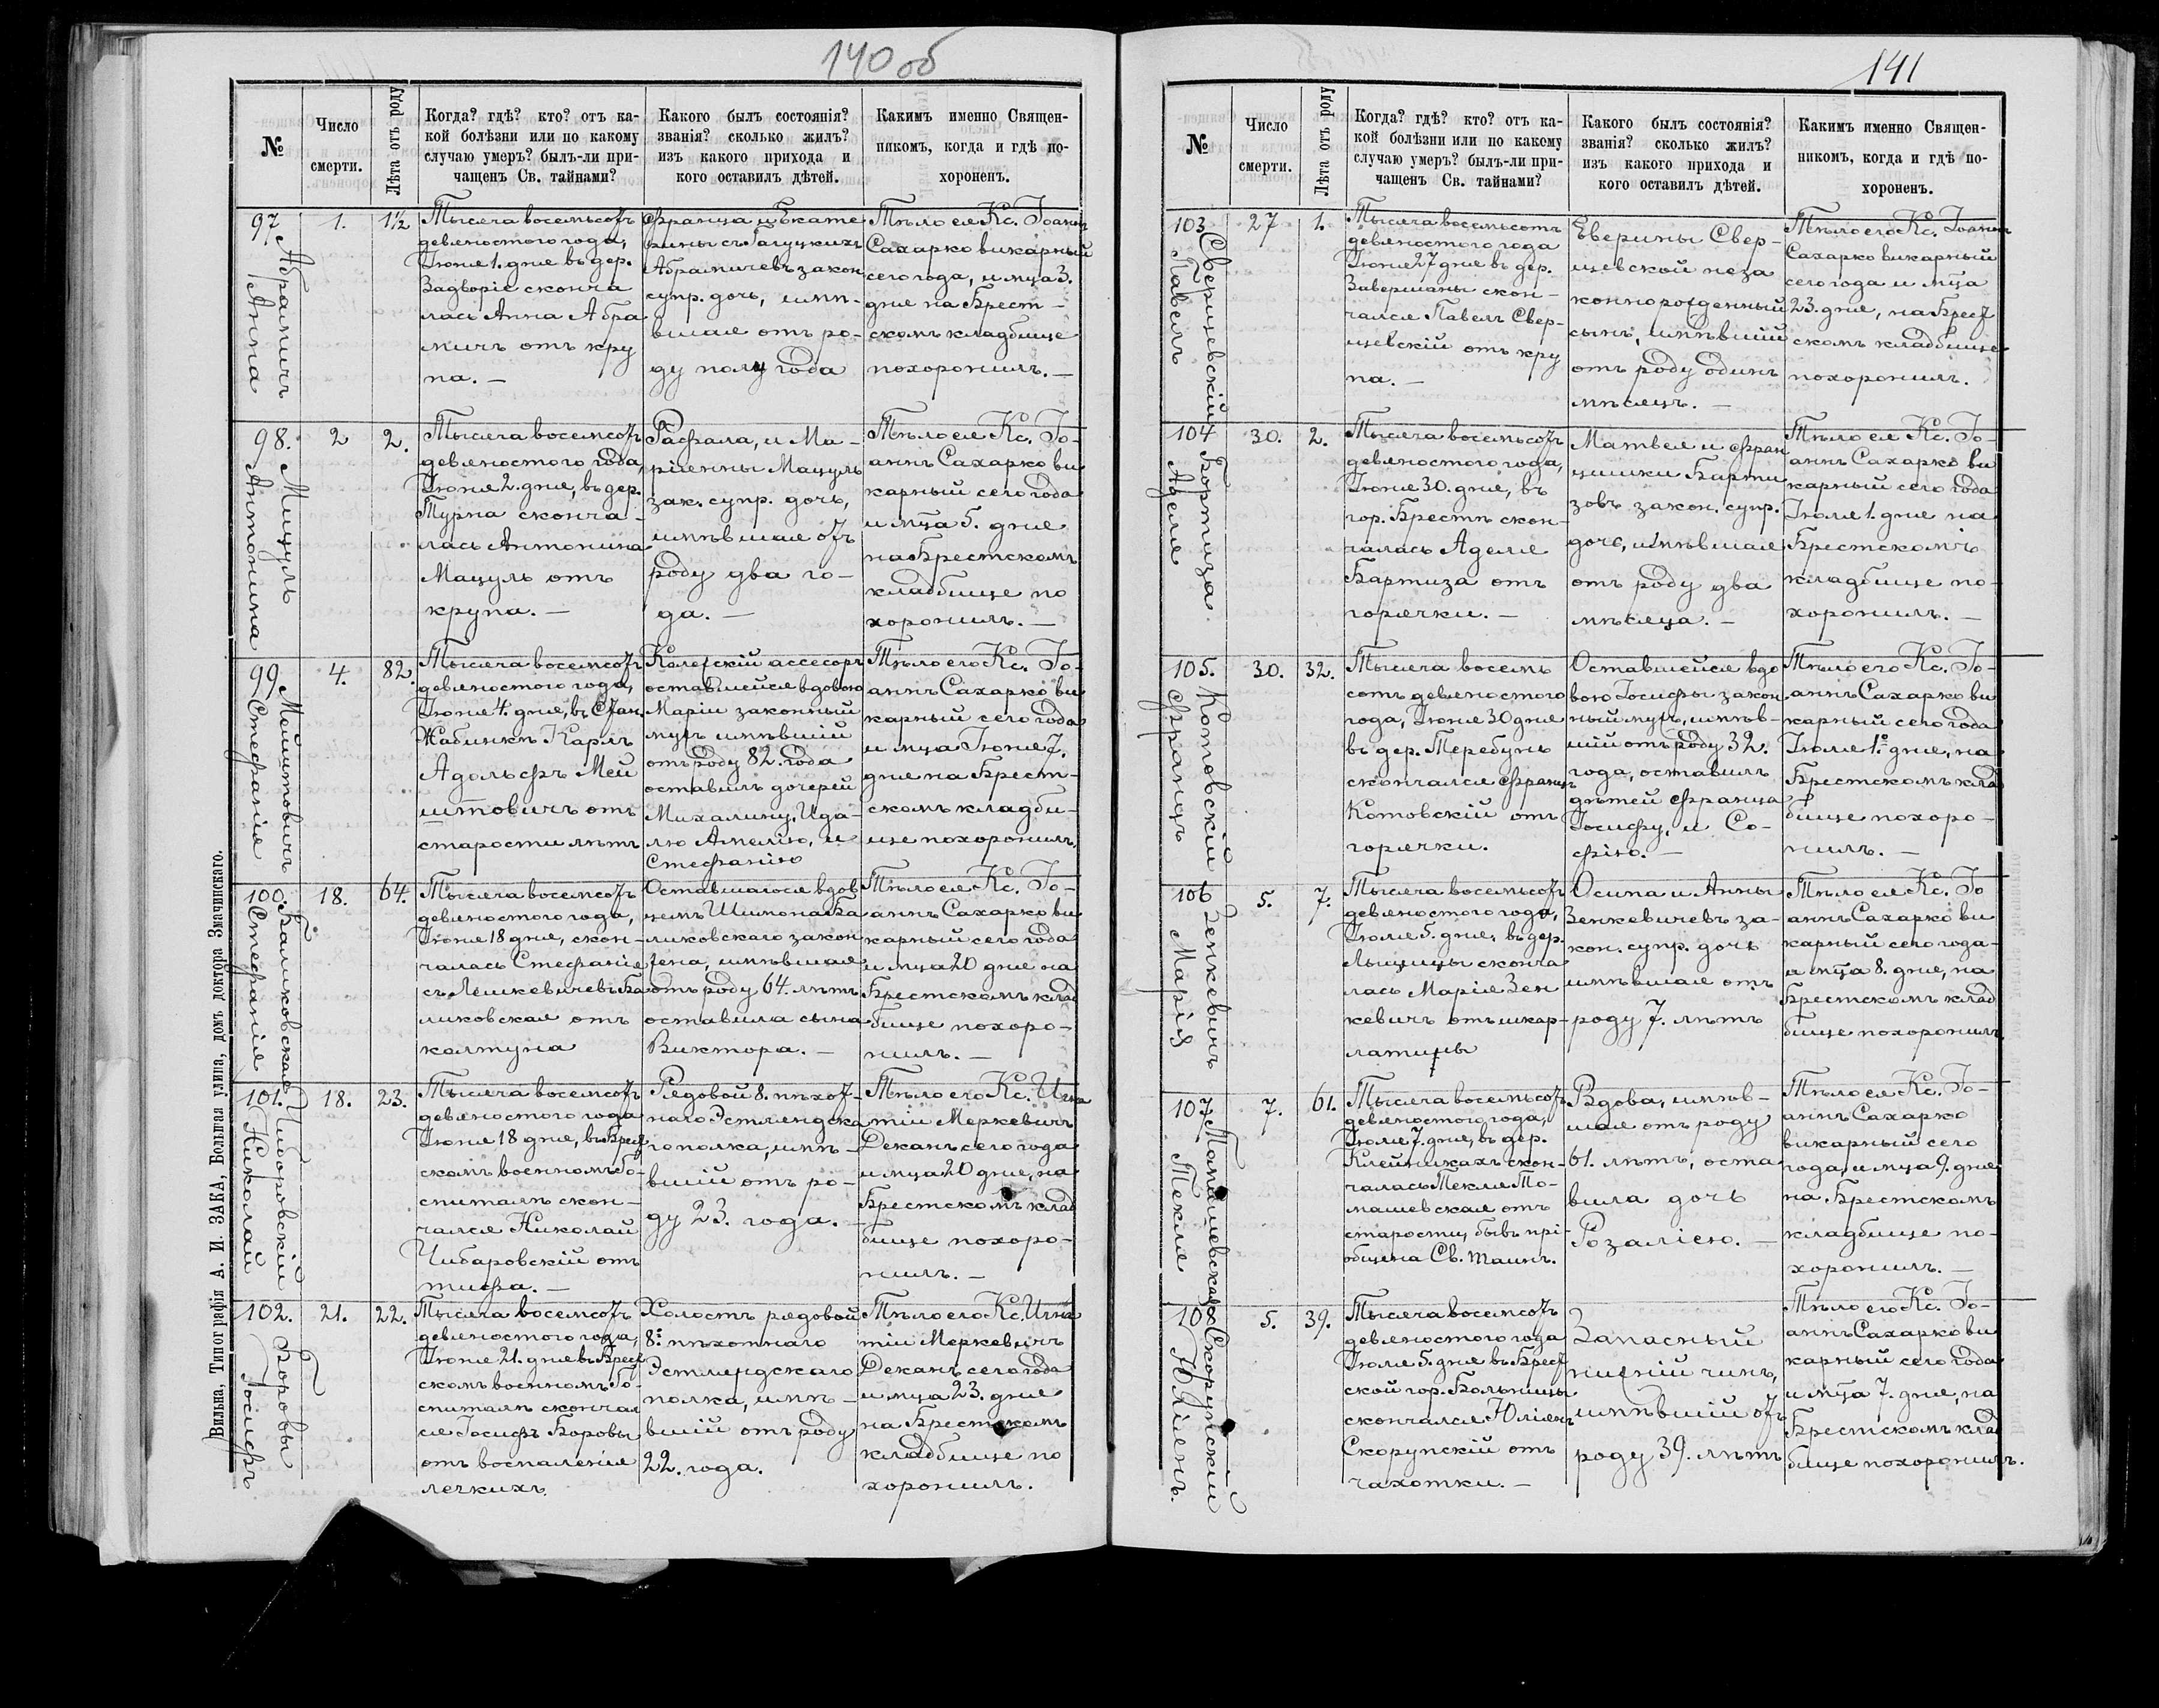 140 об
№
Число
смерти.
Лѣта отъ роду
Когда? гдѣ? кто? отъ ка-
кой болѣзни или по какому
случаю умеръ? былъ-ли при-
чащенъ Св. тайнами?
Какого былъ состоянія?
званія? сколько жилъ?
изъ какого прихода и
кого оставилъ дѣтей.
Какимъ именно Священ-
никомъ, когда и гдѣ по-
хороненъ.
97
Абрамичъ
Анна
1.
1½
Тысяча восемьсотъ
девяностого года,
Іюня 1. дня въ дер.
Задворіе сконча
лась Анна Абра
мичъ отъ кру
па. —
Франца и Екате
рины съ Галуцкихъ
Абрамичевъ закон
супр. дочь, имѣ-
вшая отъ ро-
ду полу года
Тѣло ея Кс. Іоаннъ
Сахарко викарный
сего года, и мца 3.
дня на Брест-
скомъ кладбище
похоронилъ. —
98.
Мацуль
Антонина
2
2.
Тысяча восемсотъ
девяностого года,
Іюня 2. дня, въ дер.
Турна сконча-
лась Антонина
Мацуль отъ
крупа. —
Рафала, и Ма-
ріянны Мацуль
зак. супр. дочь,
имѣвшая отъ
роду два го-
да. —
Тѣло ея Кс. Іо-
аннъ Сахарко ви
карный сего года
и мца 5. дня
на Брестскомъ
кладбище по
хоронилъ. —
99
Мейштовичъ
Стефанія
4.
82.
Тысяча восемсотъ
девяностого года,
Іюня 4. дня, въ Стан.
Жабинкѣ Карлъ
Адольфъ Мей
штовичъ отъ
старости лѣтъ
Колежскій ассесоръ
оставшейся вдовою
Маріи законный
мужъ имѣвшій
отъ роду 82. года
оставилъ дочерей
Михалину, Ида-
лю Амелію, и
Стефанію
Тѣло его Кс. Іо-
аннъ Сахарко ви
карный сего года
и мца Іюня 7.
дня на Брест-
скомъ кладби-
ще похоронилъ.
100.
Баликовская
Стефанія
18.
64.
Тысяча восемсотъ
девяностого года,
Іюня 18 дня, скон-
чалась Стефанія
съ Лешкевичевъ Ба
ликовская отъ
колтуна
Оставшагося вдов
цемъ Шимона Ба
ликовскаго закон
жена, имѣвшая
отъ роду 64. лѣтъ
оставила сына
Виктора. —
Тѣло ея Кс. Іо-
аннъ Сахарко ви
карный сего года
и мца 20 дня на
Брестскомъ клад
бище похоро-
нилъ. —
101.
Чиборовскій
Николай
18.
23.
Тысяча восемсотъ
девяностого года
Іюня 18 дня, въ Брест
скомъ военномъ Го-
спиталѣ скон-
чался Николай
Чибаровскій отъ
тифа. —
Рядовой 8. пѣхот-
наго Эстляндска
го полка, имѣ-
вшій отъ ро-
ду 23. года. —
Тѣло его Кс. Игна
тій Меркевичъ
Деканъ сего года
и мца 20 дня, на
Брестскомъ клад
бище похоро-
нилъ. —
102.
Боровы
Іосифъ
21.
22.
Тысяча восемсотъ
девяностого года,
Іюня 21. дня въ Брест
скомъ военномъ Го-
спиталѣ скончал
ся Іосифъ Боровы
отъ воспаленія
легкихъ.
Холостъ рядовой
8. пѣхотнаго
Эстляндскаго
полка, имѣ-
вшій отъ роду
22. года.
Тѣло его Кс. Игна
тій Меркевичъ
Деканъ сего года
и мца 23. дня
на Брестскомъ
кладбище по
хоронилъ.
Вильна, Типографія А. И. ЗАКА, Большая улица, домъ доктора Змачинскаго.
141
№
Число
смерти.
Лѣта отъ роду
Когда? гдѣ? кто? отъ ка-
кой болѣзни или по какому
случаю умеръ? былъ-ли при-
чащенъ Св. тайнами?
Какого былъ состоянія?
званія? сколько жилъ?
изъ какого прихода и
кого оставилъ дѣтей.
Какимъ именно Священ-
никомъ, когда и гдѣ по-
хороненъ.
103
Сверщевскій
Павелъ
27
1.
Тысяча восемьсотъ
девяностого года
Іюня 27 дня въ дер.
Завершаны скон-
чался Павелъ Свер-
щевскій отъ кру
па. —
Еверины Свер-
щевской неза
коннорожденный
сынъ, имѣвшій
отъ роду одинъ
мѣсяцъ. —
Тѣло его Кс. Іоаннъ
Сахарко викарный
сего года и мца
23. дня, на Брест
скомъ кладбище
похоронилъ.
104
Бортиза
Аделя
30.
2.
Тысяча восемьсотъ
девяностого года,
Іюня 30. дня, въ
гор. Брестѣ скон-
чалась Аделя
Бартиза отъ
горячки. —
Матвея и Фран
цишки Барти
зовъ закон. супр.
дочь, имѣвшая
отъ роду два
мѣсяца. —
Тѣло ея Кс. Іо-
аннъ Сахарко ви
карный сего года
Іюля 1. дня на
Брестскомъ
кладбище по-
хоронилъ. —
105.
Котовскій
Францъ
30.
32.
Тысяча восемь
сотъ девяностого
года, Іюня 30 дня
въ дер. Теребунь
скончался Францъ
Котовскій отъ
горячки.
Оставшейся вдо
вою Іосифы закон
ный мужъ, имѣв-
шій отъ роду 32.
года, оставилъ
дѣтей Франца
Іосифу, и Со-
фію. —
Тѣло его Кс. Іо-
аннъ Сахарко ви
карный сего года
Іюля 1. дня, на
Брестскомъ клад
бище похоро-
нилъ. —
106
Зенкевичъ
Марія
5.
7.
Тысяча восемьсотъ
девяностого года,
Іюля 5. дня, въ дер.
Лыщицы сконча
лась Марія Зен
кевичъ отъ шкар-
латины
Осипа и Анны
Зенкевичевъ за-
кон. супр. дочь
имѣвшая отъ
роду 7. лѣтъ
Тѣло ея Кс. Іо
аннъ Сахарко ви
карный сего года-
и мца 8. дня, на
Брестскомъ клад
бище похоронилъ
107
Томашевская
Текля
7.
61.
Тысяча восемьсотъ
девяностого года,
Іюля 7. дня, въ дер.
Клейникахъ скон-
чалась Текля То-
машевская отъ
старости, бывъ прі-
общена Св. таинъ.
Вдова, имѣв-
шая отъ роду
61. лѣтъ, оста
вила дочь
Розалію. —
Тѣло ея Кс. Іо-
аннъ Сахарко
викарный сего
года, и мца 9. дня
на Брестскомъ
кладбище по-
хоронилъ. —
108
Скорупскій
Юліянъ.
5.
39.
Тысяча восемсотъ
девяностого года
Іюля 5. дня въ Брест
ской гор. Больницы
скончался Юліянъ
Скорупскій отъ
чахотки. —
Запасный
нижній чинъ,
имѣвшій отъ
роду 39. лѣтъ
Тѣло его Кс. Іо-
аннъ Сахарко ви
карный сего года
и мца 7. дня, на
Брестскомъ клад
бище похоронилъ.